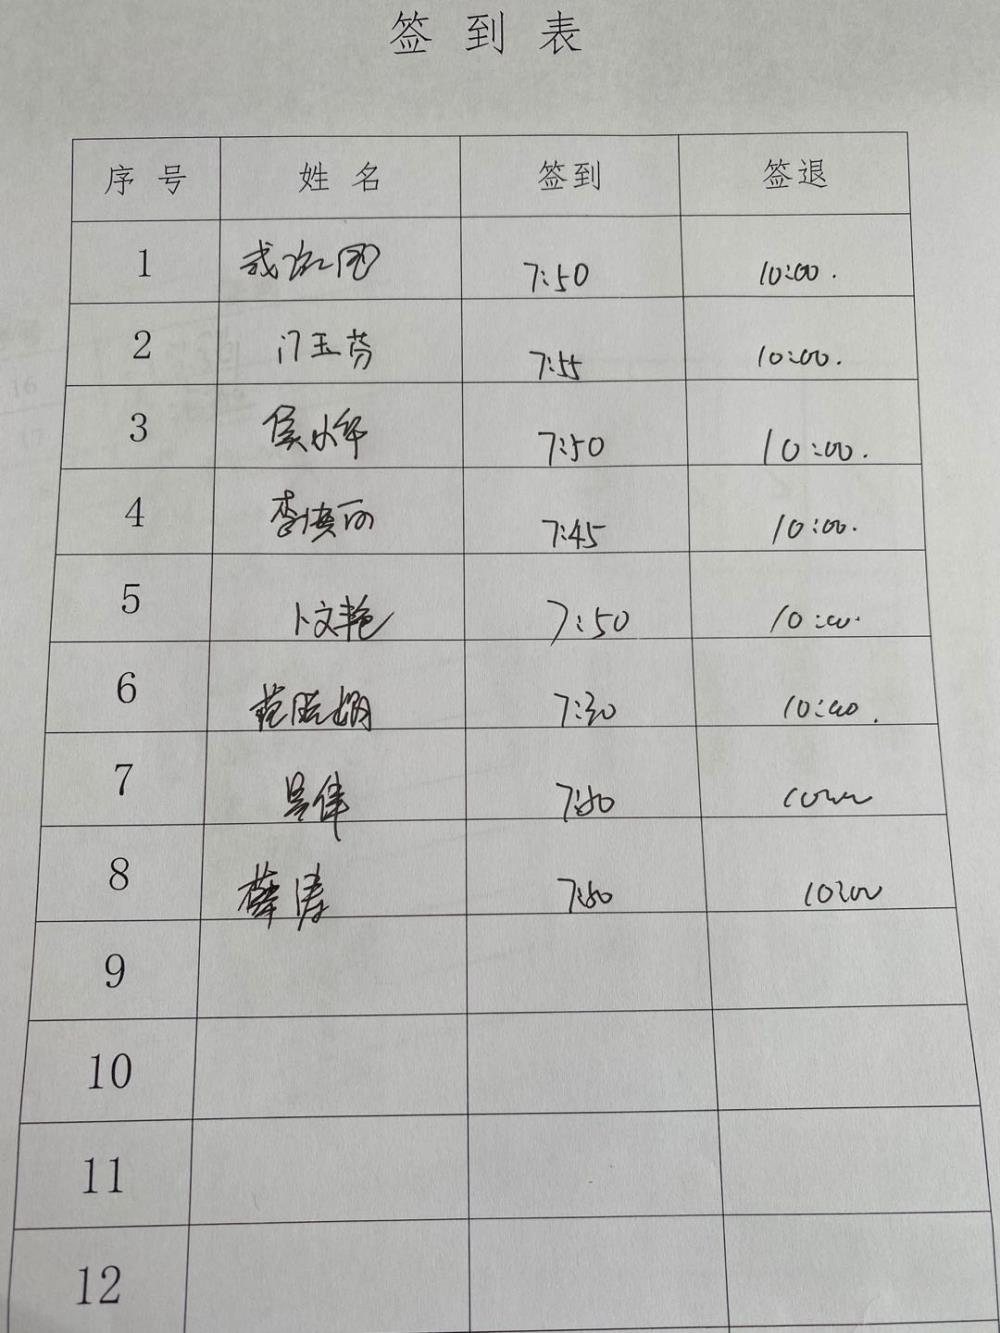 签到表
序号 姓名 签到 签退
1 7:50 10:00.
2 门玉芬 7:55 10:00.
3 7:50 10:00.
4 李焕丽 7:45 10:00.
5 卜文艳 7:50 10:00.
6 范晓娟 7:30 10:00.
7 吴伟 7:50 10:00
8 薛涛 7:50 10:00
9
10
11
12